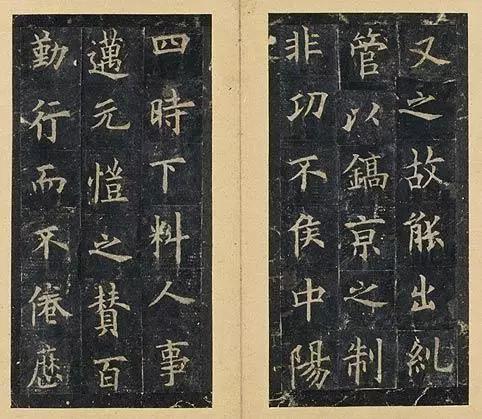 又之故能出糺
管以鎬京之制
非㓛不侯中陽
四時下料人事
邁元愷之賛百
勤行而不倦歷